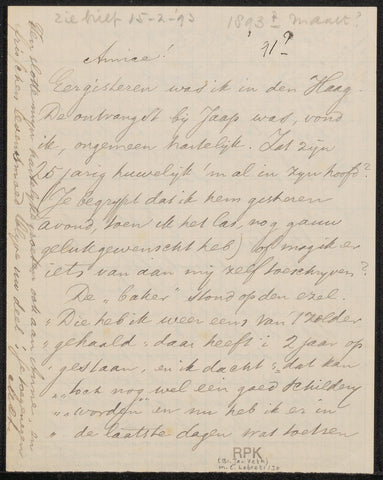 zie brief 15-2-'93 1893? maart?
'91?
Amice!
Eergisteren was ik in den Haag.
De ontvangst bij Jaap was, vond
ik, ongemeen hartelijk. Zat zijn
25 jarig huwelijk m al in zijn hoofd?
(Je begrypt dat ik hem gisteren
avond, toen ik het las, nog gauw
gelukgewenscht heb) of mag ik er
iets van aan mij zelf toeschryven?
De „baker" stond op den ezel.
„Die heb ik weer eens van 't zolder
„gehaald: daar heeft i 2 jaar op
„gestaan, en ik dacht: „dat kan
„„toch nog wel een goed schildery
„„worden" en nu heb ik er in
„de laatste dagen wat toetsen
RPK
(Br. Jan Veth)
Ten slotte mijn hartelijke groeten ook aan Anna, en